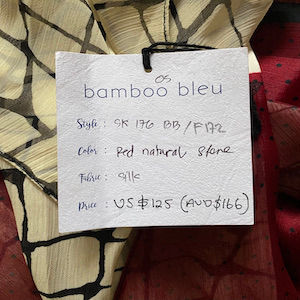 OS
bamboo bleu
Style : SK 176 BB / F172
Color : Red natural stone
Fabric : silk
Price : US $125 (AUD$166)